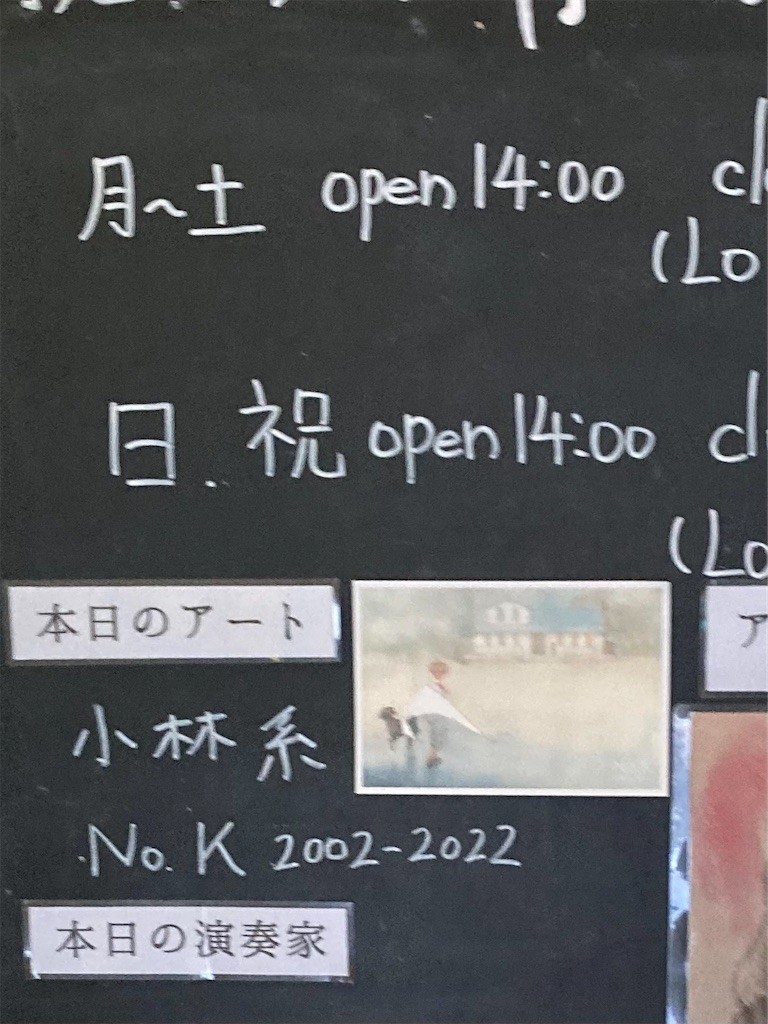 月~土 open 14:00
(Lo
日.祝 open 14:00
(Lo
本日のアート
小林系
No. K 2002-2022
本日の演奏家